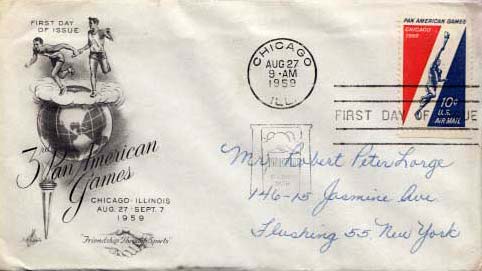 FIRST DAY
OF ISSUE
3rd Pan American
Games
CHICAGO·ILLINOIS
AUG. 27 - SEPT. 7
1959
"Friendship Through Sports"
CHICAGO
AUG 27
9 - AM
1959
ILL.
PAN AMERICAN GAMES
CHICAGO
1959
10¢
U.S.
AIR MAIL
FIRST DAY OF ISSUE
Mr. Robert Peter Lorge
146-15 Jasmine Ave.
Flushing 55, New York